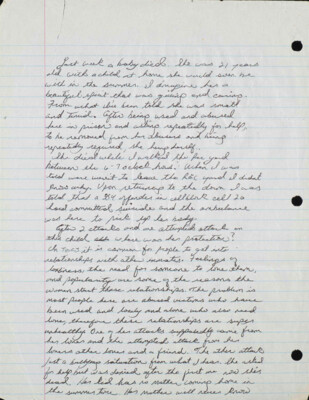 Last week a baby died. She was 21 years
old with a child at home she would even
with in the summer. I imagine has a
beautiful spirit that was gossip and caring.
From what I've been told she was small
and timid. After being used and abused
here in prison and asking repeatedly for help,
to be removed from her abusers and being
repeatedly refused she hung herself.
She died while I walked the yard
between the 6-7 o'clock hour. When I was
told were weren't to leave the yard I didn't
know why. Upon returning to the dorm I was
told that a offender in cellblock cell 20
had committed suicide and the ambulance
was here to pick up her body.
After 2 attacks and one attempted attack on
this child, where was her protection?
Ok yes it is common for people to get into
relationships with other inmates. Feelings of
loneliness, the need for someone to love them,
and are some of the reasons the
women start these relationships. The problem is
most people here are abused victims who have
been used and lonely and alone, who also need
love, therefore these relationships are super
unhealthy. One of her attacks supposedly came from
her lover and the attempted attack from her
lovers other lover and a friend. The other attack
just a situation from what I hear. She asked
for help but was denied after the first one so she's
dead. Her kid has no mother coming home in
the summer time. Her mother will never